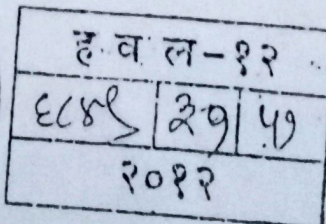 ह व ल - १२
६८४९ ३७ ५७
२०१२